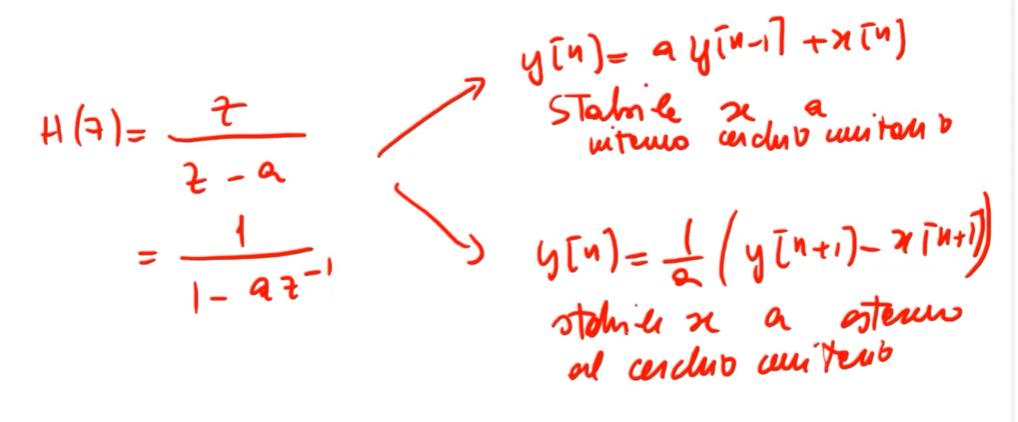 H(z) = z / (z - a)
= 1 / (1 - az⁻¹)
y[n] = a y[n-1] + x[n]
Stabile se a
interno cerchio unitario
y[n] = 1/a (y[n+1] - x[n+1])
stabile se a esterno
al cerchio unitario